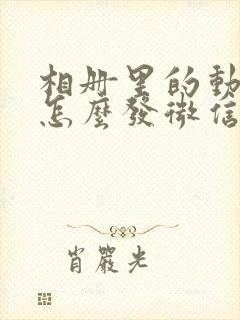 相册里的動
怎麼發微信
肖嚴光